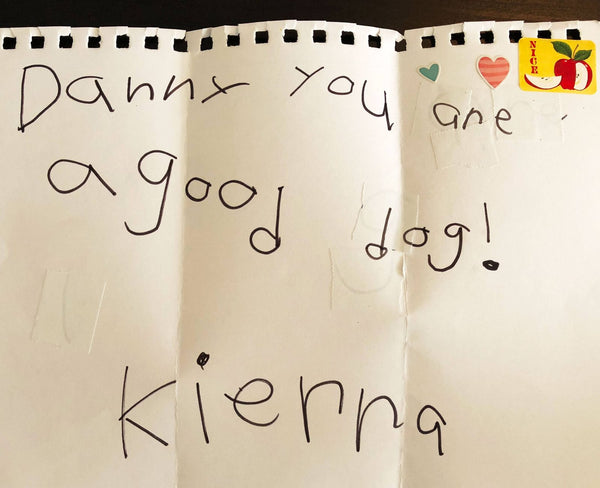 NICE
Danny you are
a good dog!
Kierra